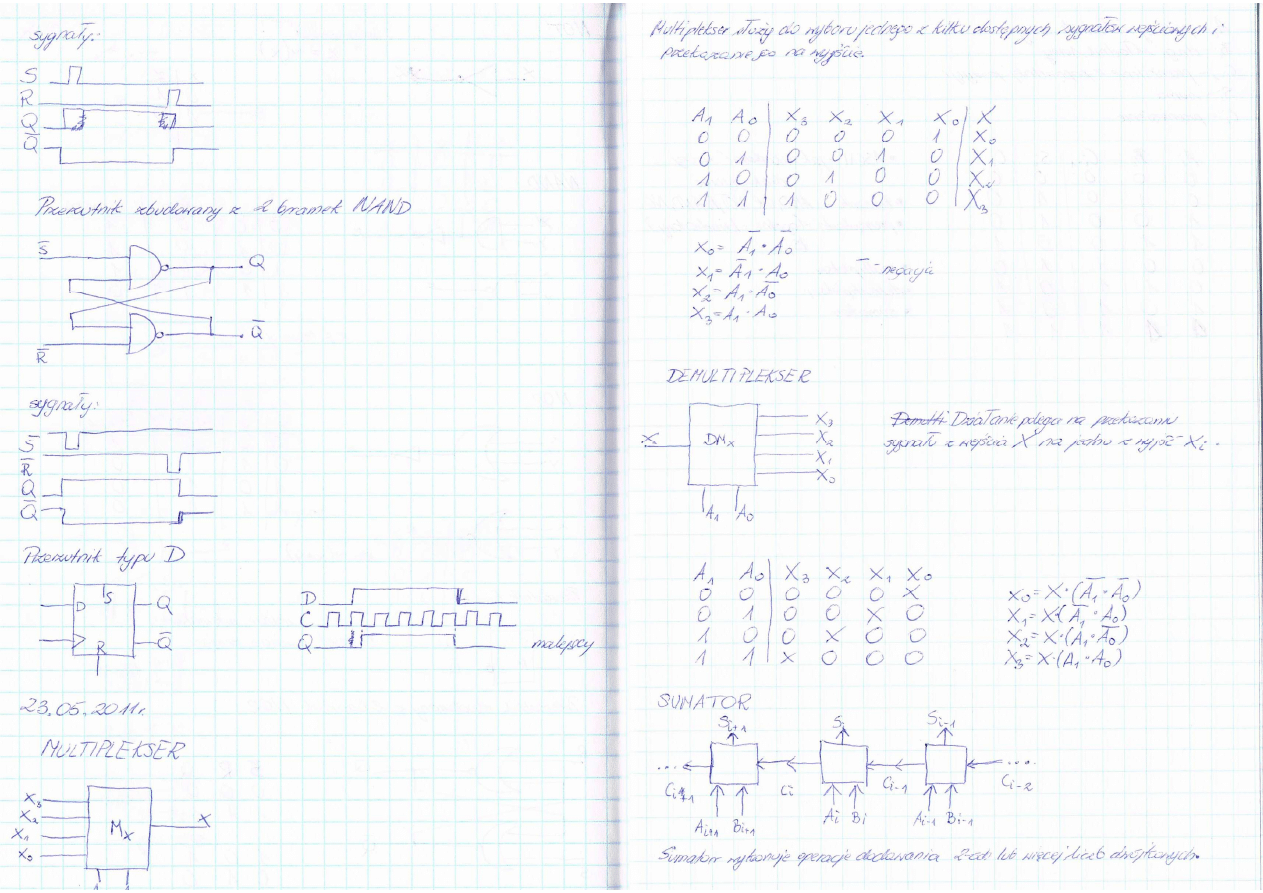 sygnały:
S
R
Q
Q̅
Przerzutnik zbudowany z 2 bramek NAND
S̅
Q
Q̅
R̅
sygnały:
S̅
R̅
Q
Q̅
Przerzutnik typu D
D S Q
R Q̅
D
C
Q
malejący
23.05.2011r.
MULTIPLEKSER
X₃
X₂
X₁
X₀
Mx
X
Multiplekser służy do wyboru jednego z kilku dostępnych sygnałów wejściowych i
przekazanie go na wyjście.
A₁ A₀ X₃ X₂ X₁ X₀ X
0 0 0 0 0 1 X₀
0 1 0 0 1 0 X₁
1 0 0 1 0 0 X₂
1 1 1 0 0 0 X₃
X₀ = A̅₁ · A̅₀
X₁ = A̅₁ · A₀
‾ - negacja
X₂ = A₁ · A̅₀
X₃ = A₁ · A₀
DEMULTIPLEKSER
X
DMx
X₃
X₂
X₁
X₀
A₁ A₀
Demulti Działanie polega na przekazaniu
sygnału z wejścia X na jedno z wyjść Xi.
A₁ A₀ X₃ X₂ X₁ X₀
0 0 0 0 0 X
0 1 0 0 X 0
1 0 0 X 0 0
1 1 X 0 0 0
X₀ = X·(A̅₁ · A̅₀)
X₁ = X·(A̅₁ · A₀)
X₂ = X·(A₁ · A̅₀)
X₃ = X·(A₁ · A₀)
SUMATOR
Si+1 Si Si-1
... ....
Ci+1 Ci Ci-1 Ci-2
Ai+1 Bi+1 Ai Bi Ai-1 Bi-1
Sumator wykonuje operacje dodawania 2-óch lub więcej liczb dwójkowych.